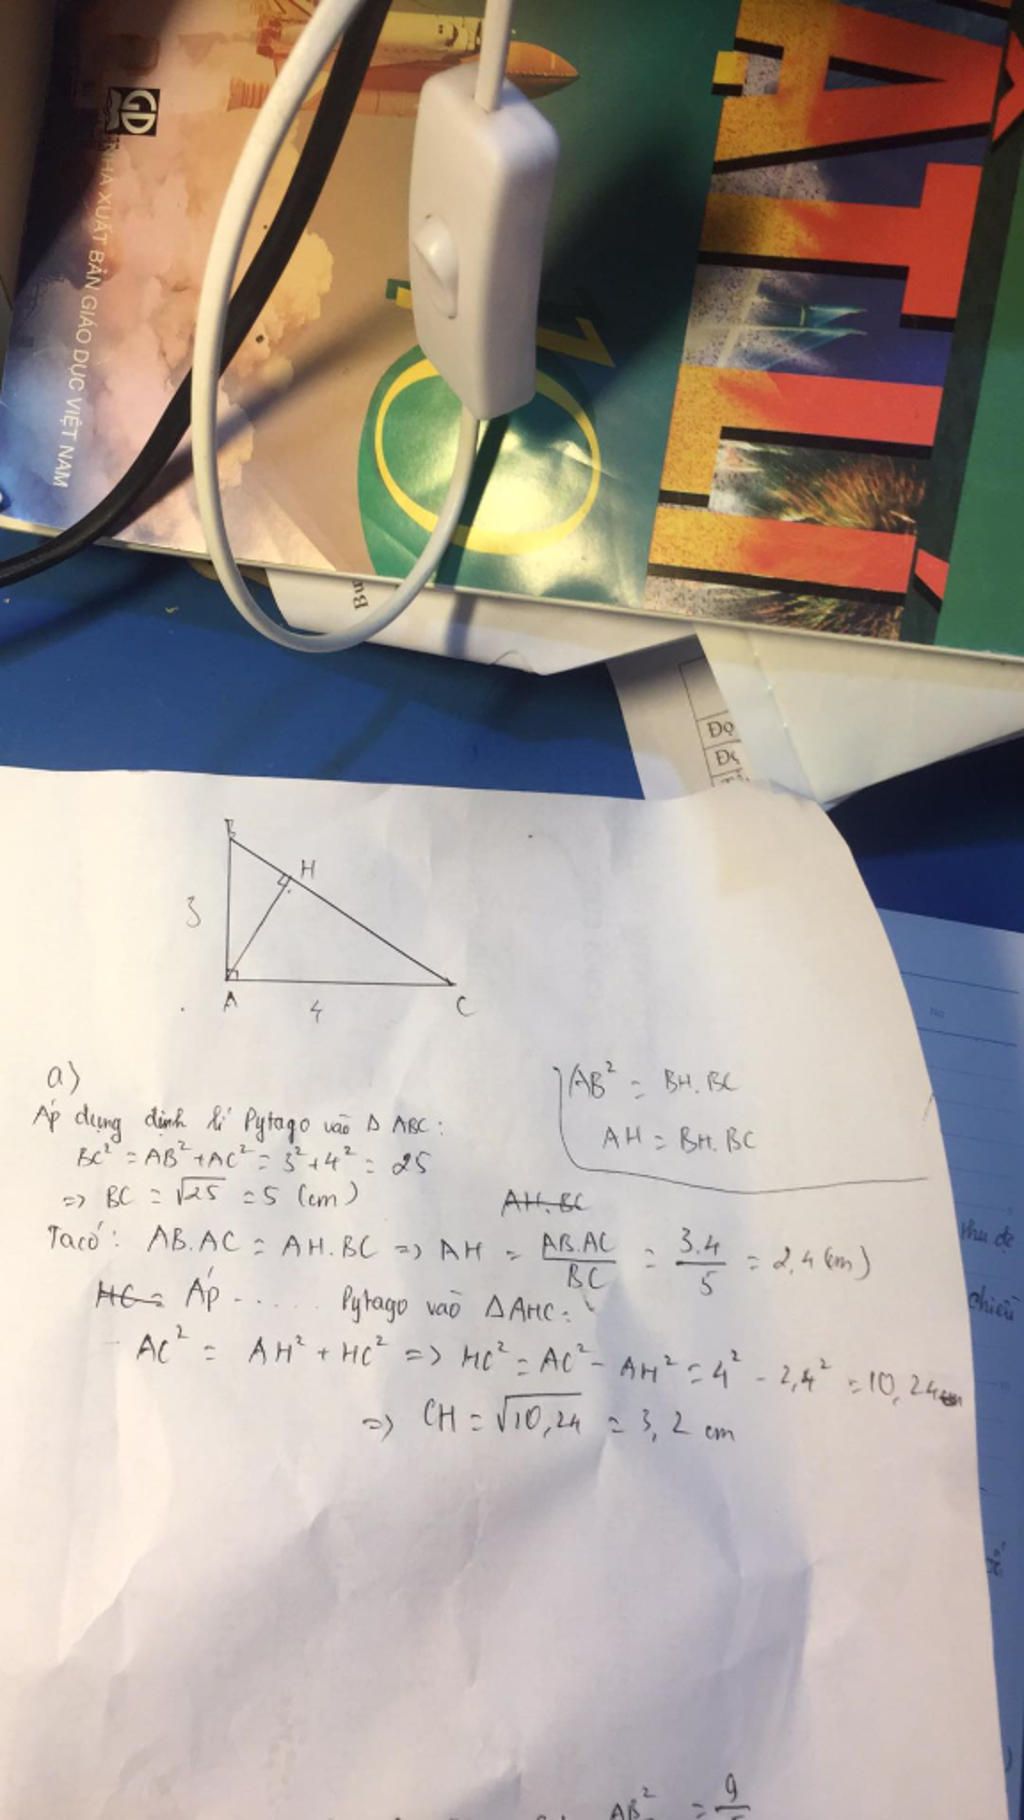 GD
NHÀ XUẤT BẢN GIÁO DỤC VIỆT NAM
10
VẬT LÍ
Bu
Đọ
Đọ
B
H
3
A
4
C
a)
Áp dụng định lí Pytago vào Δ ABC:
BC² = AB² + AC² = 3² + 4² = 25
=> BC = √25 = 5 (cm)
AB² = BH.BC
AH = BH.BC
AH.BC
Ta có: AB.AC = AH.BC => AH = AB.AC/BC = 3.4/5 = 2,4 (cm)
HC = Áp ...... Pytago vào ΔAHC:
AC² = AH² + HC² => HC² = AC² - AH² = 4² - 2,4² = 10,24
=> CH = √10,24 = 3,2 cm
chiều
AB² = 9